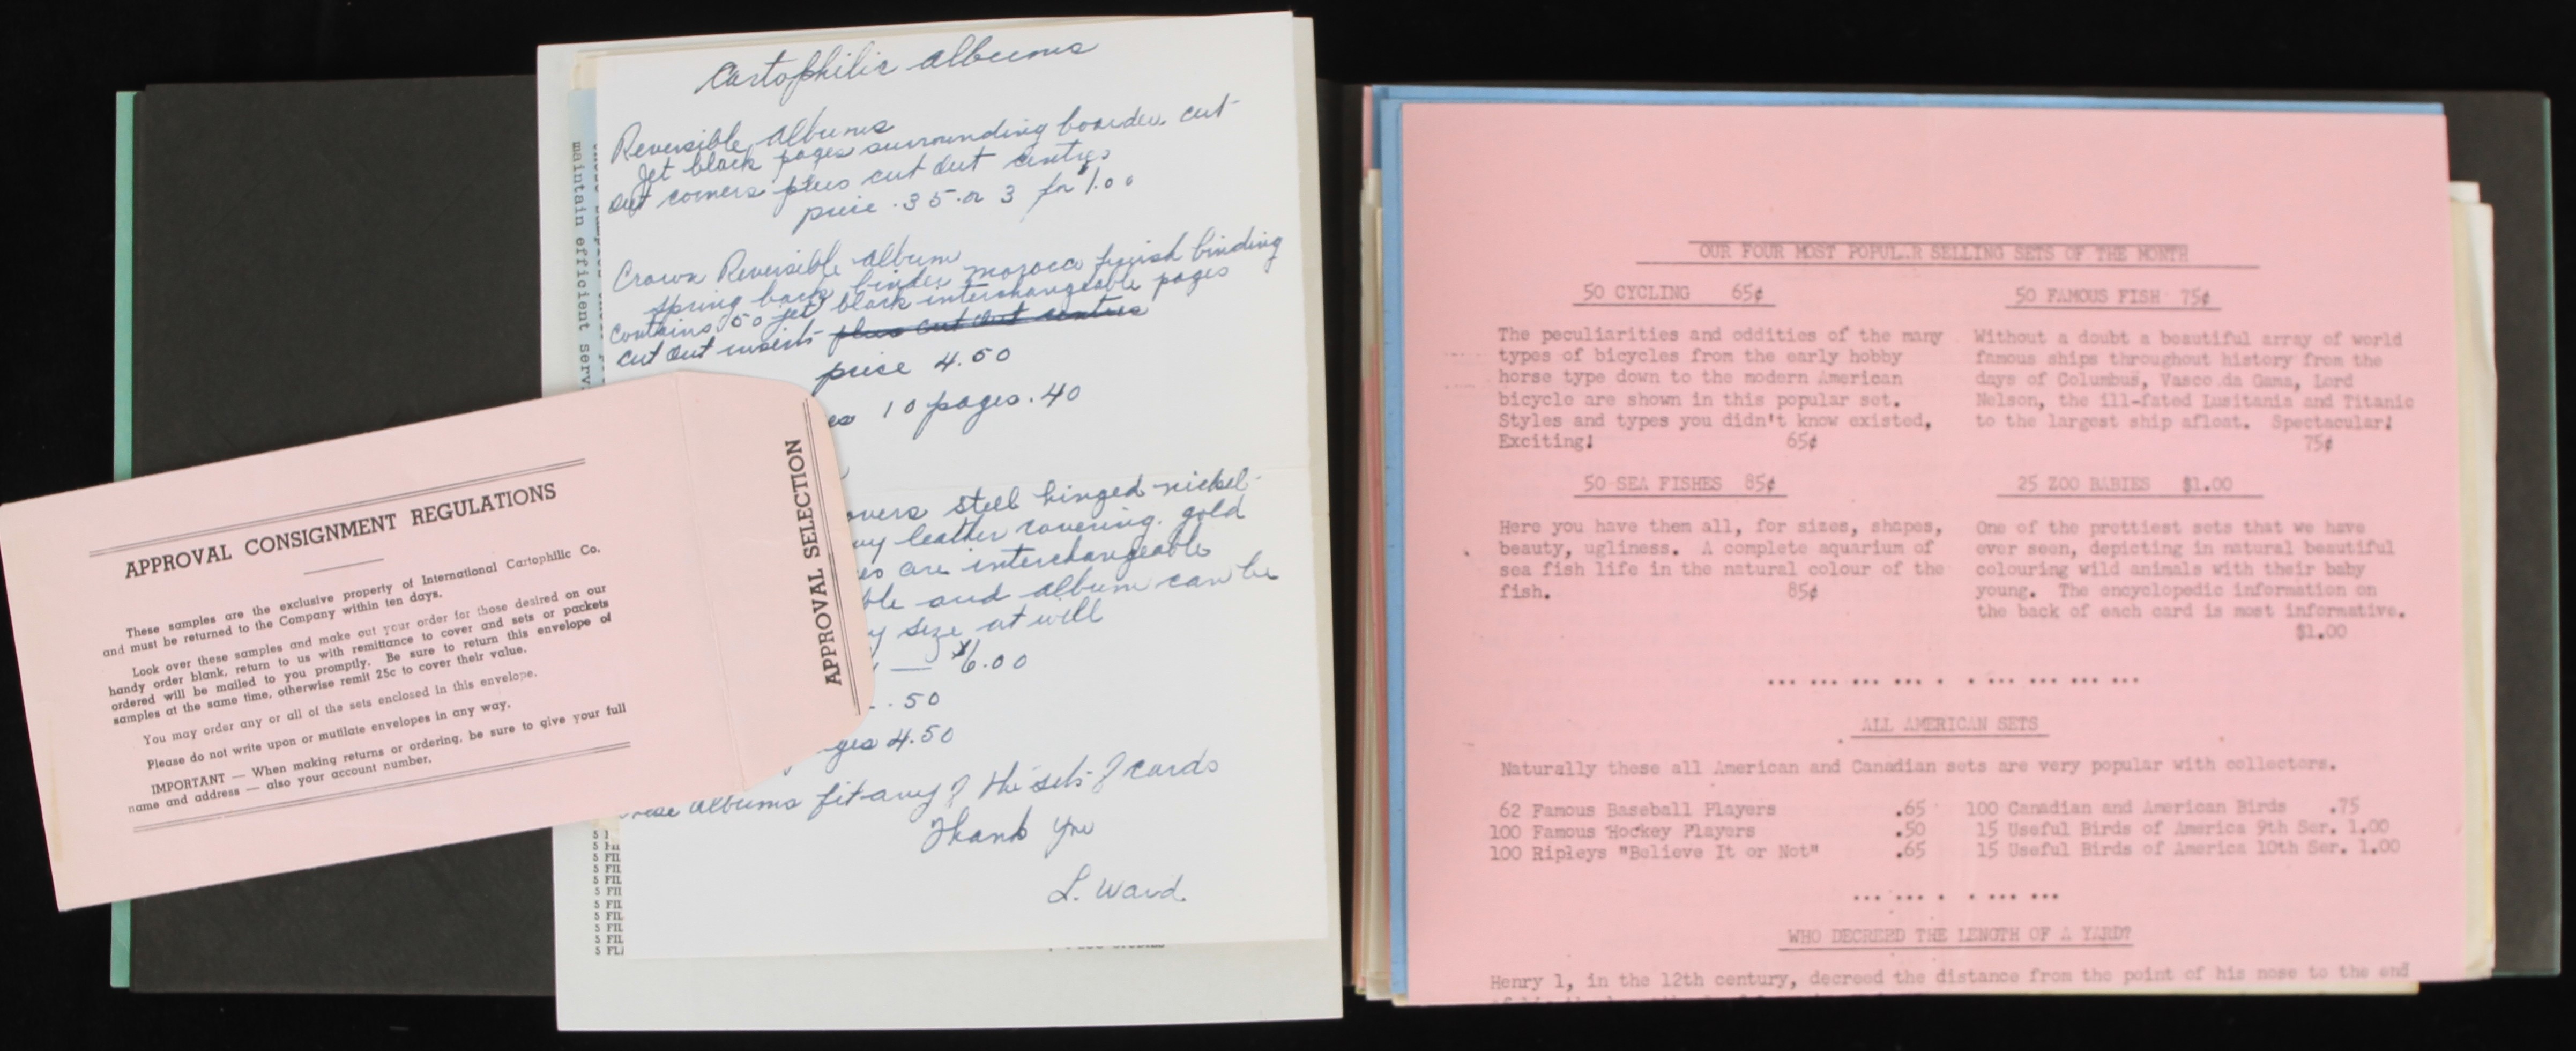 Cartophilic albums
Reversible albums
Jet black pages surrounding boarder cut
out corners plus cut out centres
price .35 or 3 for $1.00
Crown Reversible album
spring back binder morocco finish binding
contains 50 jet black interchangeable pages
cut out inserts plus cut out centres
price 4.50
10 pages .40
overs steel hinged nickel-
leather covering. gold
are interchangeable
ble and album can be
size at will
$6.00
.50
ges 4.50
albums fit any of the sets of cards
Thank You
L. Ward.
maintain efficient serv
5 FIL
5 FIL
5 FIL
5 FIL
5 FIL
5 FIL
5 FIL
5 FIL
5 FIL
APPROVAL SELECTION
APPROVAL CONSIGNMENT REGULATIONS
These samples are the exclusive property of International Cartophilic Co.
and must be returned to the Company within ten days.
Look over these samples and make out your order for those desired on our
handy order blank, return to us with remittance to cover and sets or packets
ordered will be mailed to you promptly. Be sure to return this envelope of
samples at the same time, otherwise remit 25c to cover their value.
You may order any or all of the sets enclosed in this envelope.
Please do not write upon or mutilate envelopes in any way.
IMPORTANT — When making returns or ordering, be sure to give your full
name and address — also your account number.
OUR FOUR MOST POPUL.R SELLING SETS OF THE MONTH
50 CYCLING 65¢
The peculiarities and oddities of the many
types of bicycles from the early hobby
horse type down to the modern American
bicycle are shown in this popular set.
Styles and types you didn't know existed,
Exciting! 65¢
50 FAMOUS FISH 75¢
Without a doubt a beautiful array of world
famous ships throughout history from the
days of Columbus, Vasco da Gama, Lord
Nelson, the ill-fated Lusitania and Titanic
to the largest ship afloat. Spectacular!
75¢
50 SEA FISHES 85¢
Here you have them all, for sizes, shapes,
beauty, ugliness. A complete aquarium of
sea fish life in the natural colour of the
fish. 85¢
25 ZOO BABIES $1.00
One of the prettiest sets that we have
ever seen, depicting in natural beautiful
colouring wild animals with their baby
young. The encyclopedic information on
the back of each card is most informative.
$1.00
ALL AMERICAN SETS
Naturally these all American and Canadian sets are very popular with collectors.
62 Famous Baseball Players .65 100 Canadian and American Birds .75
100 Famous Hockey Players .50 15 Useful Birds of America 9th Ser. 1.00
100 Ripleys "Believe It or Not" .65 15 Useful Birds of America 10th Ser. 1.00
WHO DECREED THE LENGTH OF A YARD?
Henry 1, in the 12th century, decreed the distance from the point of his nose to the end